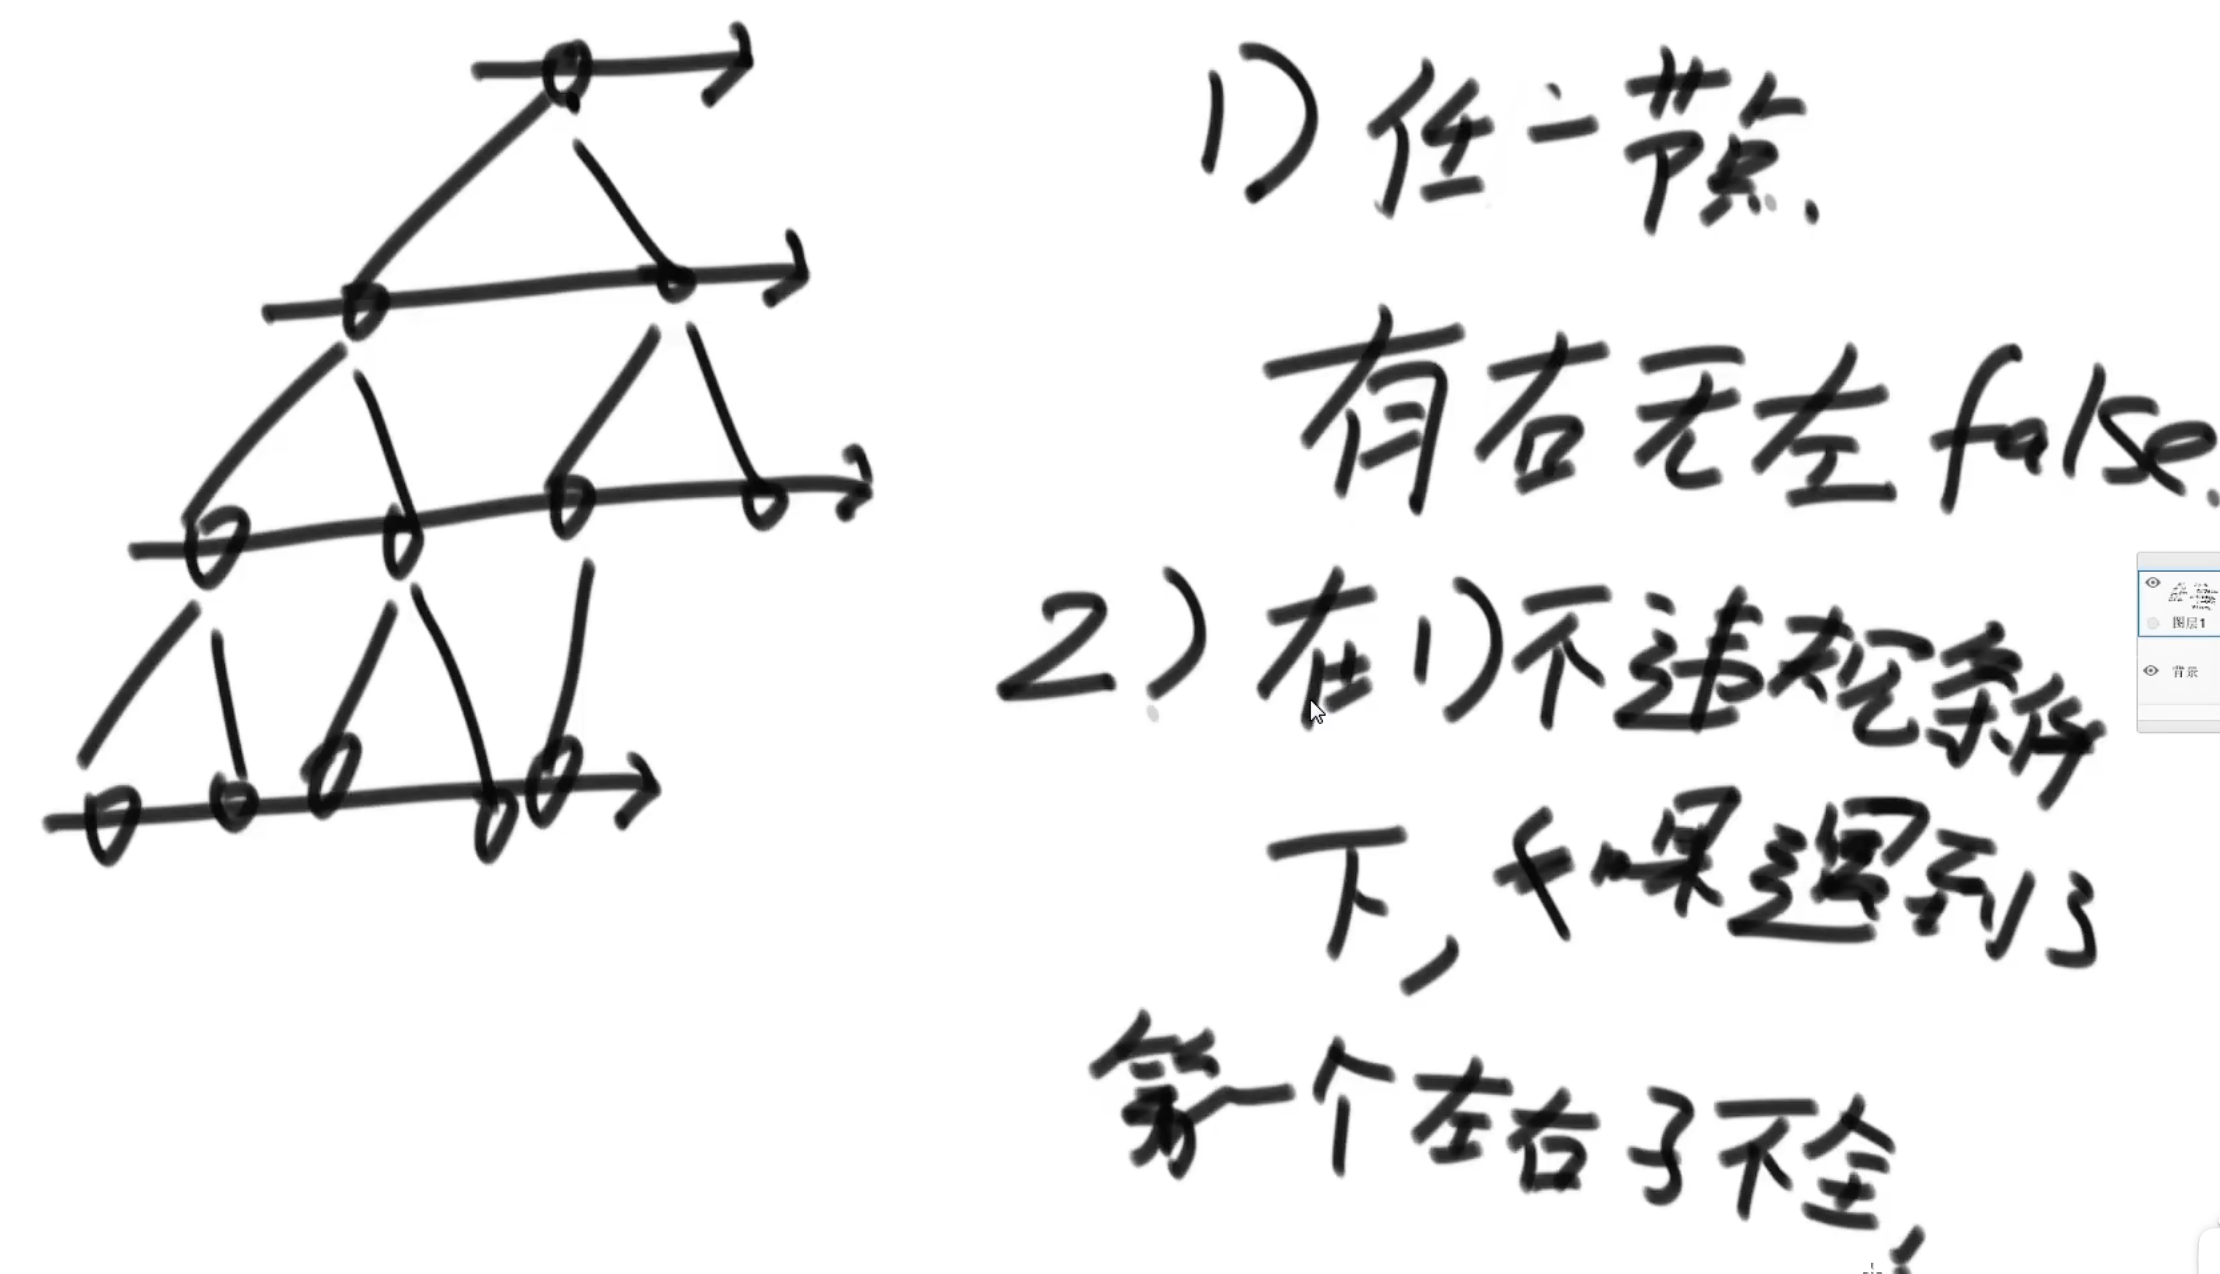 1) 任一节点.
有右无左 false.
2) 在1)不违规条件
下,如果遇到了
第一个左右子不全,
图层1
背景